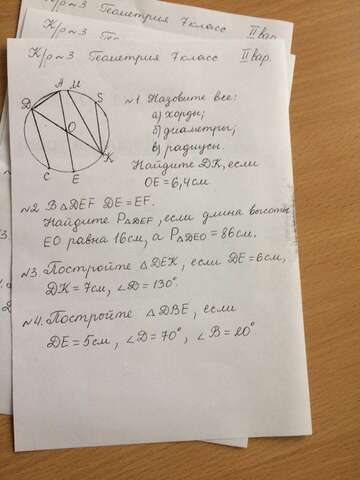 Геометрия 7 класс II вар.
К/р №3
К/р №3 Геометрия 7 класс II вар.
А М
S
Д
О
К
С Е
№1. Назовите все:
а) хорды;
б) диаметры;
в) радиусы.
Найдите DК, если
ОЕ = 6,4см
№2. В △DEF DE = EF.
Найдите P△DEF, если длина высоты
ЕО равна 16см, а P△DEO = 86см.
№3. Постройте △DEK, если DE = 6см,
DK = 7см, ∠D = 130°.
№4. Постройте △DBE, если
DE = 5см, ∠D = 70°, ∠B = 20°